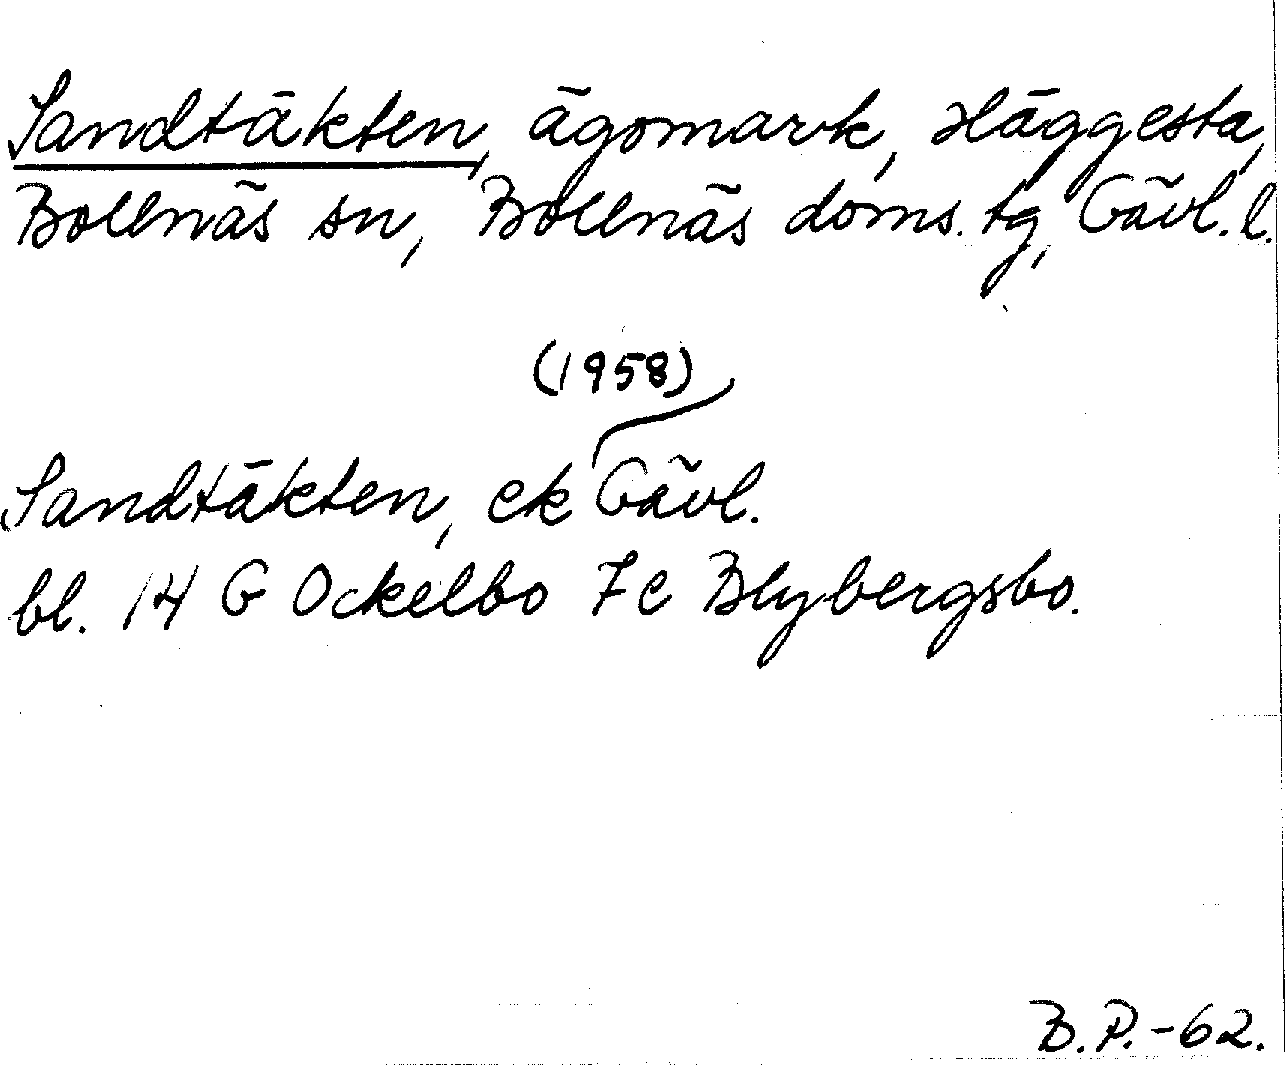 Sandtäkten, ägomark, Häggesta,
Bollnäs sn, Bollnäs doms. tg, Gävl. l.
(1958)
Sandtäkten, ek Gävl.
bl. 14 G Ockelbo 7 c Blybergsbo.
B.P.-62.